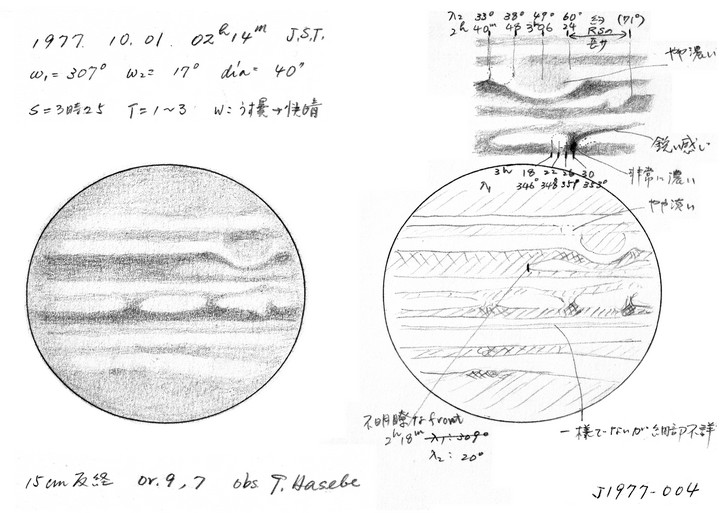 1977. 10. 01. 02h14m J.S.T.
ω₁= 307° ω₂= 17° dia= 40"
S=3時25 T=1~3 W=うす曇→快晴
λ₂ 33° 38° 49° 60° 約 (71°)
2h 40m 48 3h06 24 RSの
長サ
やや濃い
鋭い感じ
非常に濃い
3h 18 22 26 30
λ₁ 346° 348° 351° 353°
やや淡い
不明瞭なfront
2h18m λ₁: 309°
λ₂: 20°
一様でないが細部不詳
15cm反経 or. 9, 7 obs T. Hasebe
J1977-004